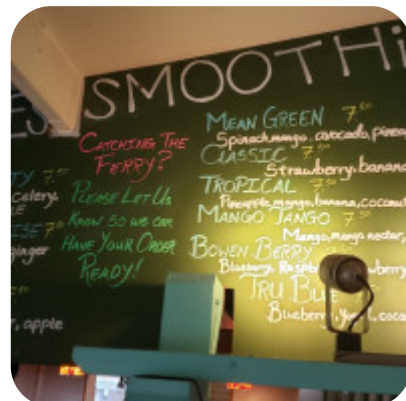 SMOOTHi
CATCHING THE
FERRY?
PLEASE LET US
KNOW SO WE CAN
HAVE YOUR ORDER
READY!
MEAN GREEN 7.50
Spinach, mango, avocado, pinea
CLASSIC 7.50
Strawberry, banana
TROPICAL 7.50
Pineapple, mango, banana, coconut
MANGO TANGO 7.50
Mango, mango nectar,
BOWEN BERRY
Blueberry, Raspb wberry
TRU BLUE
Blueberry, coco
TY 7.50
Celery,
ISE 7
ginger
, apple